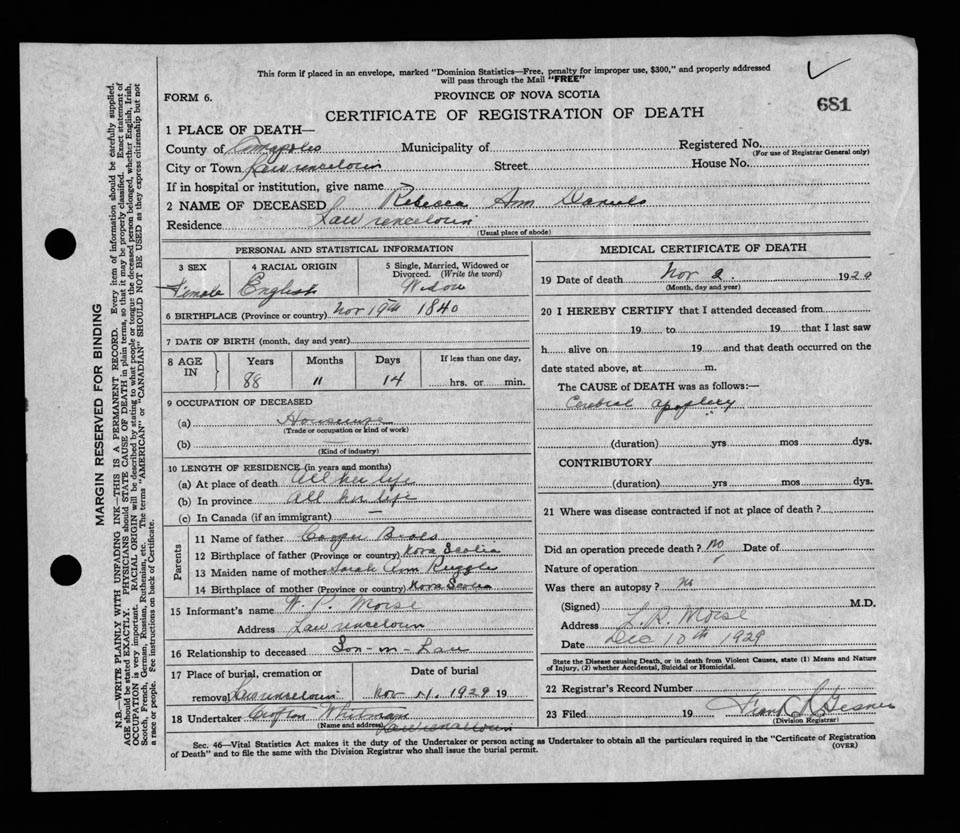 This form if placed in an envelope, marked "Dominion Statistics—Free, penalty for improper use, $300," and properly addressed
will pass through the Mail "FREE"
FORM 6.
PROVINCE OF NOVA SCOTIA
681
CERTIFICATE OF REGISTRATION OF DEATH
1 PLACE OF DEATH—
County of Annapolis Municipality of Registered No.
(For use of Registrar General only)
City or Town Lawrencetown Street House No.
If in hospital or institution, give name
2 NAME OF DECEASED Rebecca Ann Daniels
Residence Lawrencetown
(Usual place of abode)
PERSONAL AND STATISTICAL INFORMATION
3 SEX 4 RACIAL ORIGIN 5 Single, Married, Widowed or
Divorced. (Write the word)
Female English Widow
6 BIRTHPLACE (Province or country) Nov 19th 1840
7 DATE OF BIRTH (month, day and year)
8 AGE IN Years Months Days If less than one day,
88 " 14 hrs. or min.
9 OCCUPATION OF DECEASED
(a) Housewife
(Trade or occupation or kind of work)
(b)
(Kind of industry)
10 LENGTH OF RESIDENCE (in years and months)
(a) At place of death All her life
(b) In province All her life
(c) In Canada (if an immigrant) —
Parents
11 Name of father Beals
12 Birthplace of father (Province or country) Nova Scotia
13 Maiden name of mother Sarah Ann Ruggles
14 Birthplace of mother (Province or country) Nova Scotia
15 Informant's name W. P. Morse
Address Lawrencetown
16 Relationship to deceased Son-in-Law
17 Place of burial, cremation or Date of burial
removal Lawrencetown Nov 1929 19
18 Undertaker Crofton Whitman
(Name and address) Lawrencetown
MEDICAL CERTIFICATE OF DEATH
19 Date of death Nov 2. 1929
(Month, day and year)
20 I HEREBY CERTIFY that I attended deceased from
19 to 19 that I last saw
h alive on 19 and that death occurred on the
date stated above, at m.
The CAUSE of DEATH was as follows:—
Cerebral apoplexy
(duration) yrs mos dys.
CONTRIBUTORY
(duration) yrs mos dys.
21 Where was disease contracted if not at place of death?
Did an operation precede death? No Date of
Nature of operation
Was there an autopsy? No
(Signed) M.D.
Address L. R. Morse
Date Dec 10th 1929
State the Disease causing Death, or in death from Violent Causes, state (1) Means and Nature
of Injury, (2) whether Accidental, Suicidal or Homicidal.
22 Registrar's Record Number
23 Filed 19 Frank Gesner
(Division Registrar)
Sec. 46—Vital Statistics Act makes it the duty of the Undertaker or person acting as Undertaker to obtain all the particulars required in the "Certificate of Registration
of Death" and to file the same with the Division Registrar who shall issue the burial permit.
(OVER)
MARGIN RESERVED FOR BINDING
N.B.—WRITE PLAINLY WITH UNFADING INK—THIS IS A PERMANENT RECORD. Every item of information should be carefully supplied.
AGE should be stated EXACTLY. PHYSICIANS should STATE CAUSE OF DEATH in plain terms, so that it may be properly classified. Exact statement of
OCCUPATION is very important. RACIAL ORIGIN will be described by stating to what people or tongue the deceased person belonged, whether English, Irish,
Scotch, French, German, Russian, Ruthenian, etc. The terms "AMERICAN" or "CANADIAN" SHOULD NOT BE USED as they express citizenship but not
a race or people. See instructions on back of Certificate.